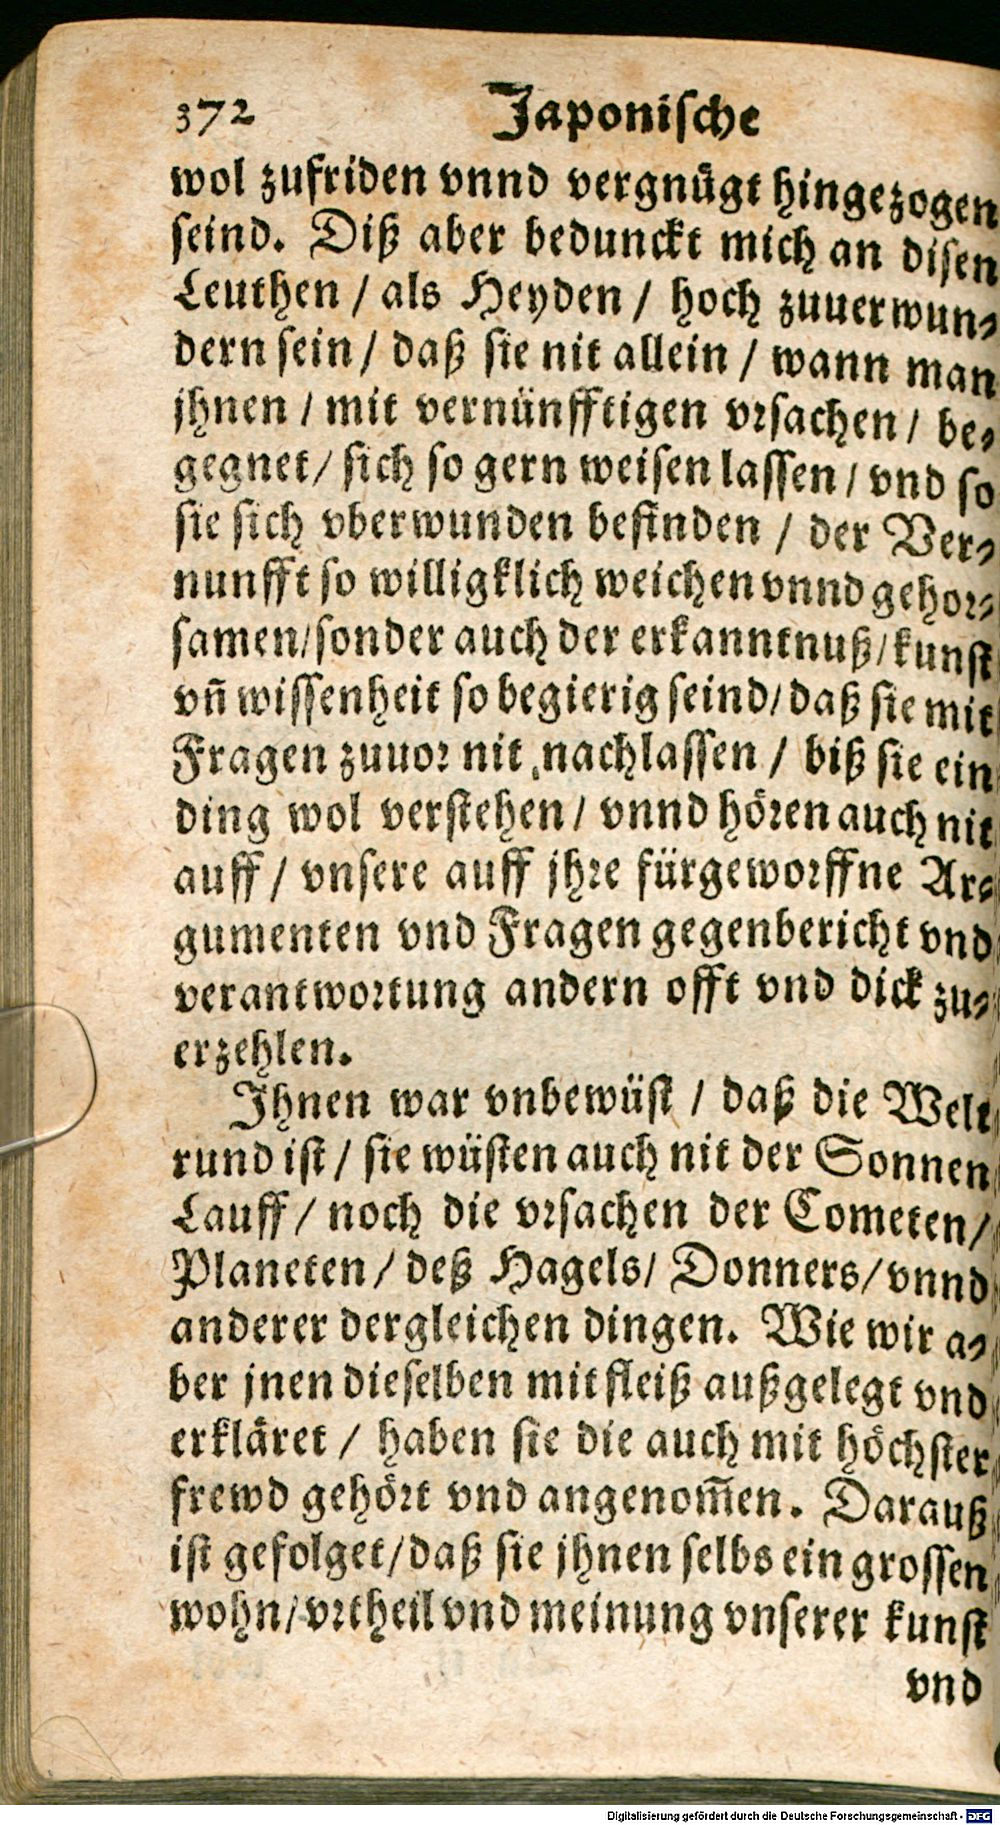 372 Japonische
wol zufriden vnnd vergnügt hingezogen
seind. Diß aber bedunckt mich an disen
Leuthen / als Heyden / hoch zuuerwun-
dern sein / daß sie nit allein / wann man
jhnen / mit vernünfftigen vrsachen / be-
gegnet / sich so gern weisen lassen / vnd so
sie sich vberwunden befinden / der Ver-
nunfft so willigklich weichen vnnd gehor-
samen / sonder auch der erkanntnuß / kunst
vñ wissenheit so begierig seind / daß sie mit
Fragen zuuor nit nachlassen / biß sie ein
ding wol verstehen / vnnd hören auch nit
auff / vnsere auff jhre fürgeworffne Ar-
gumenten vnd Fragen gegenbericht vnd
verantwortung andern offt vnd dick zu-
erzehlen.
Ihnen war vnbewüst / daß die Welt
rund ist / sie wüsten auch nit der Sonnen
Lauff / noch die vrsachen der Cometen /
Planeten / deß Hagels / Donners / vnnd
anderer dergleichen dingen. Wie wir a-
ber jnen dieselben mit fleiß außgelegt vnd
erkläret / haben sie die auch mit höchster
frewd gehört vnd angenom̃en. Darauß
ist gefolget / daß sie jhnen selbs ein grossen
wohn / vrtheil vnd meinung vnserer kunst
vnd
Digitalisierung gefördert durch die Deutsche Forschungsgemeinschaft - DFG